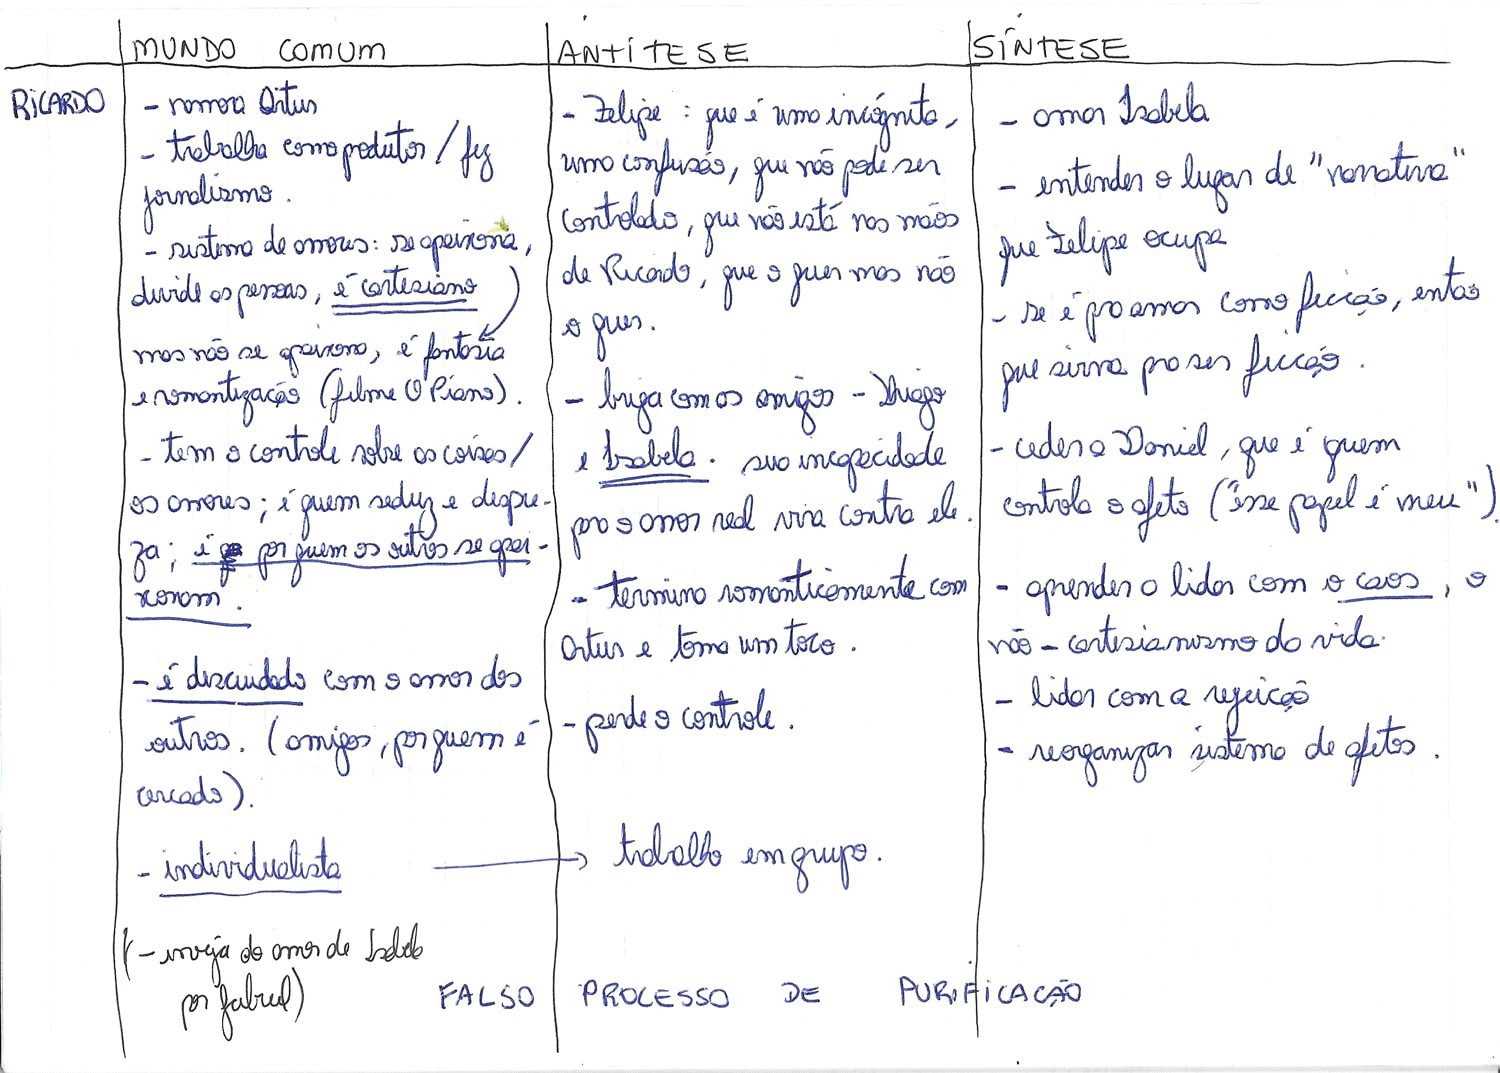 MUNDO COMUM
ANTÍTESE
SÍNTESE
RICARDO
- namora Artur
- trabalha como produtor / fez
jornalismo.
- sistema de amores: se apaixona,
divide as pessoas, é cartesiano
mas não se apaixona, é fantasia
e romantização (filme O Piano).
- tem o controle sobre as coisas /
os amores; é quem seduz e despre-
za; é por quem os outros se apai-
xonam.
- é descuidado com o amor dos
outros. (amigos, por quem é
cercado).
- individualista
(- inveja do amor de Isabela
por Gabriel)
- Felipe: que é uma incógnita,
uma confusão, que não pode ser
controlado, que não está nas mãos
de Ricardo, que o quer mas não
o quer.
- briga com os amigos - Thiago
e Isabela. sua incapacidade
pro o amor real vira contra ele.
- termina romanticamente com
Artur e toma um toco.
- perde o controle.
trabalho em grupo.
- amar Isabela
- entender o lugar de "narrativa"
que Felipe ocupa
- se é pro amor como ficção, então
que sirva pro ser ficção.
- ceder a Daniel, que é quem
controla o afeto ("esse papel é meu").
- aprender a lidar com o caos, o
não-cartesianismo da vida.
- lidar com a rejeição
- reorganizar sistema de afetos.
FALSO PROCESSO DE PURIFICAÇÃO